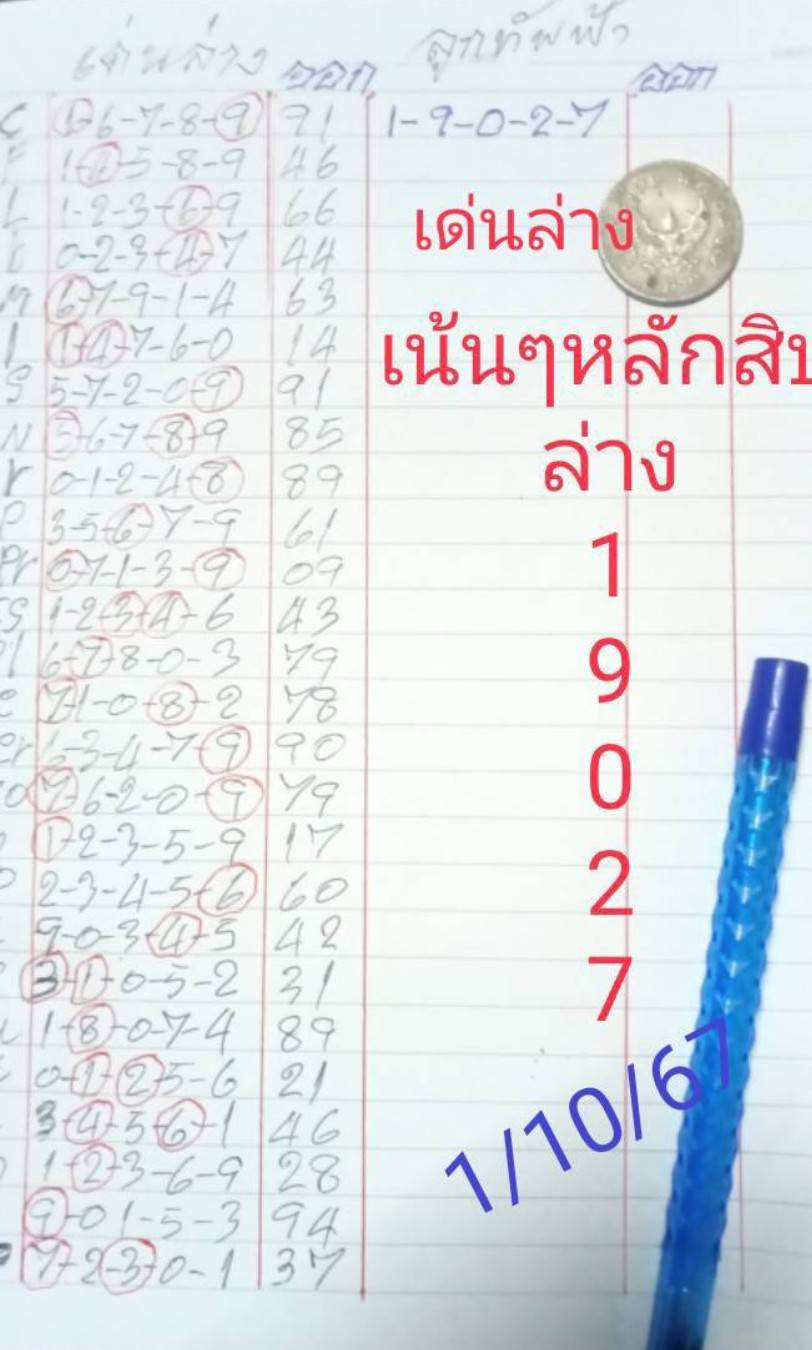 เด่นล่าง ออก ลูกทัพฟ้า ออก
C 1-6-7-8-9 91 1-9-0-2-7
F 1-4-5-8-9 46
L 1-2-3-6-9 66
0-2-3-4-7 44
m 6-7-9-1-4 63
1-4-7-6-0 14
S 5-7-2-0-9 91
N 5-6-7-8-9 85
r 0-1-2-4-8 89
P 3-5-6-7-9 61
Pr 0-7-1-3-9 09
ES 1-2-3-4-6 43
6-7-8-0-3 79
e 7-1-0-8-2 78
er 3-4-7-9 90
o 7-6-2-0-9 79
1-2-3-5-9 17
2-3-4-5-6 60
9-0-3-4-5 42
3-1-0-5-2 31
1-8-0-7-4 89
0-1-2-5-6 21
3-4-5-6-1 46
1-2-3-6-9 28
9-0 1-5-3 94
7-2-3-0-1 37
เด่นล่าง
เน้นๆหลักสิบ
ล่าง
1
9
0
2
7
1/10/67